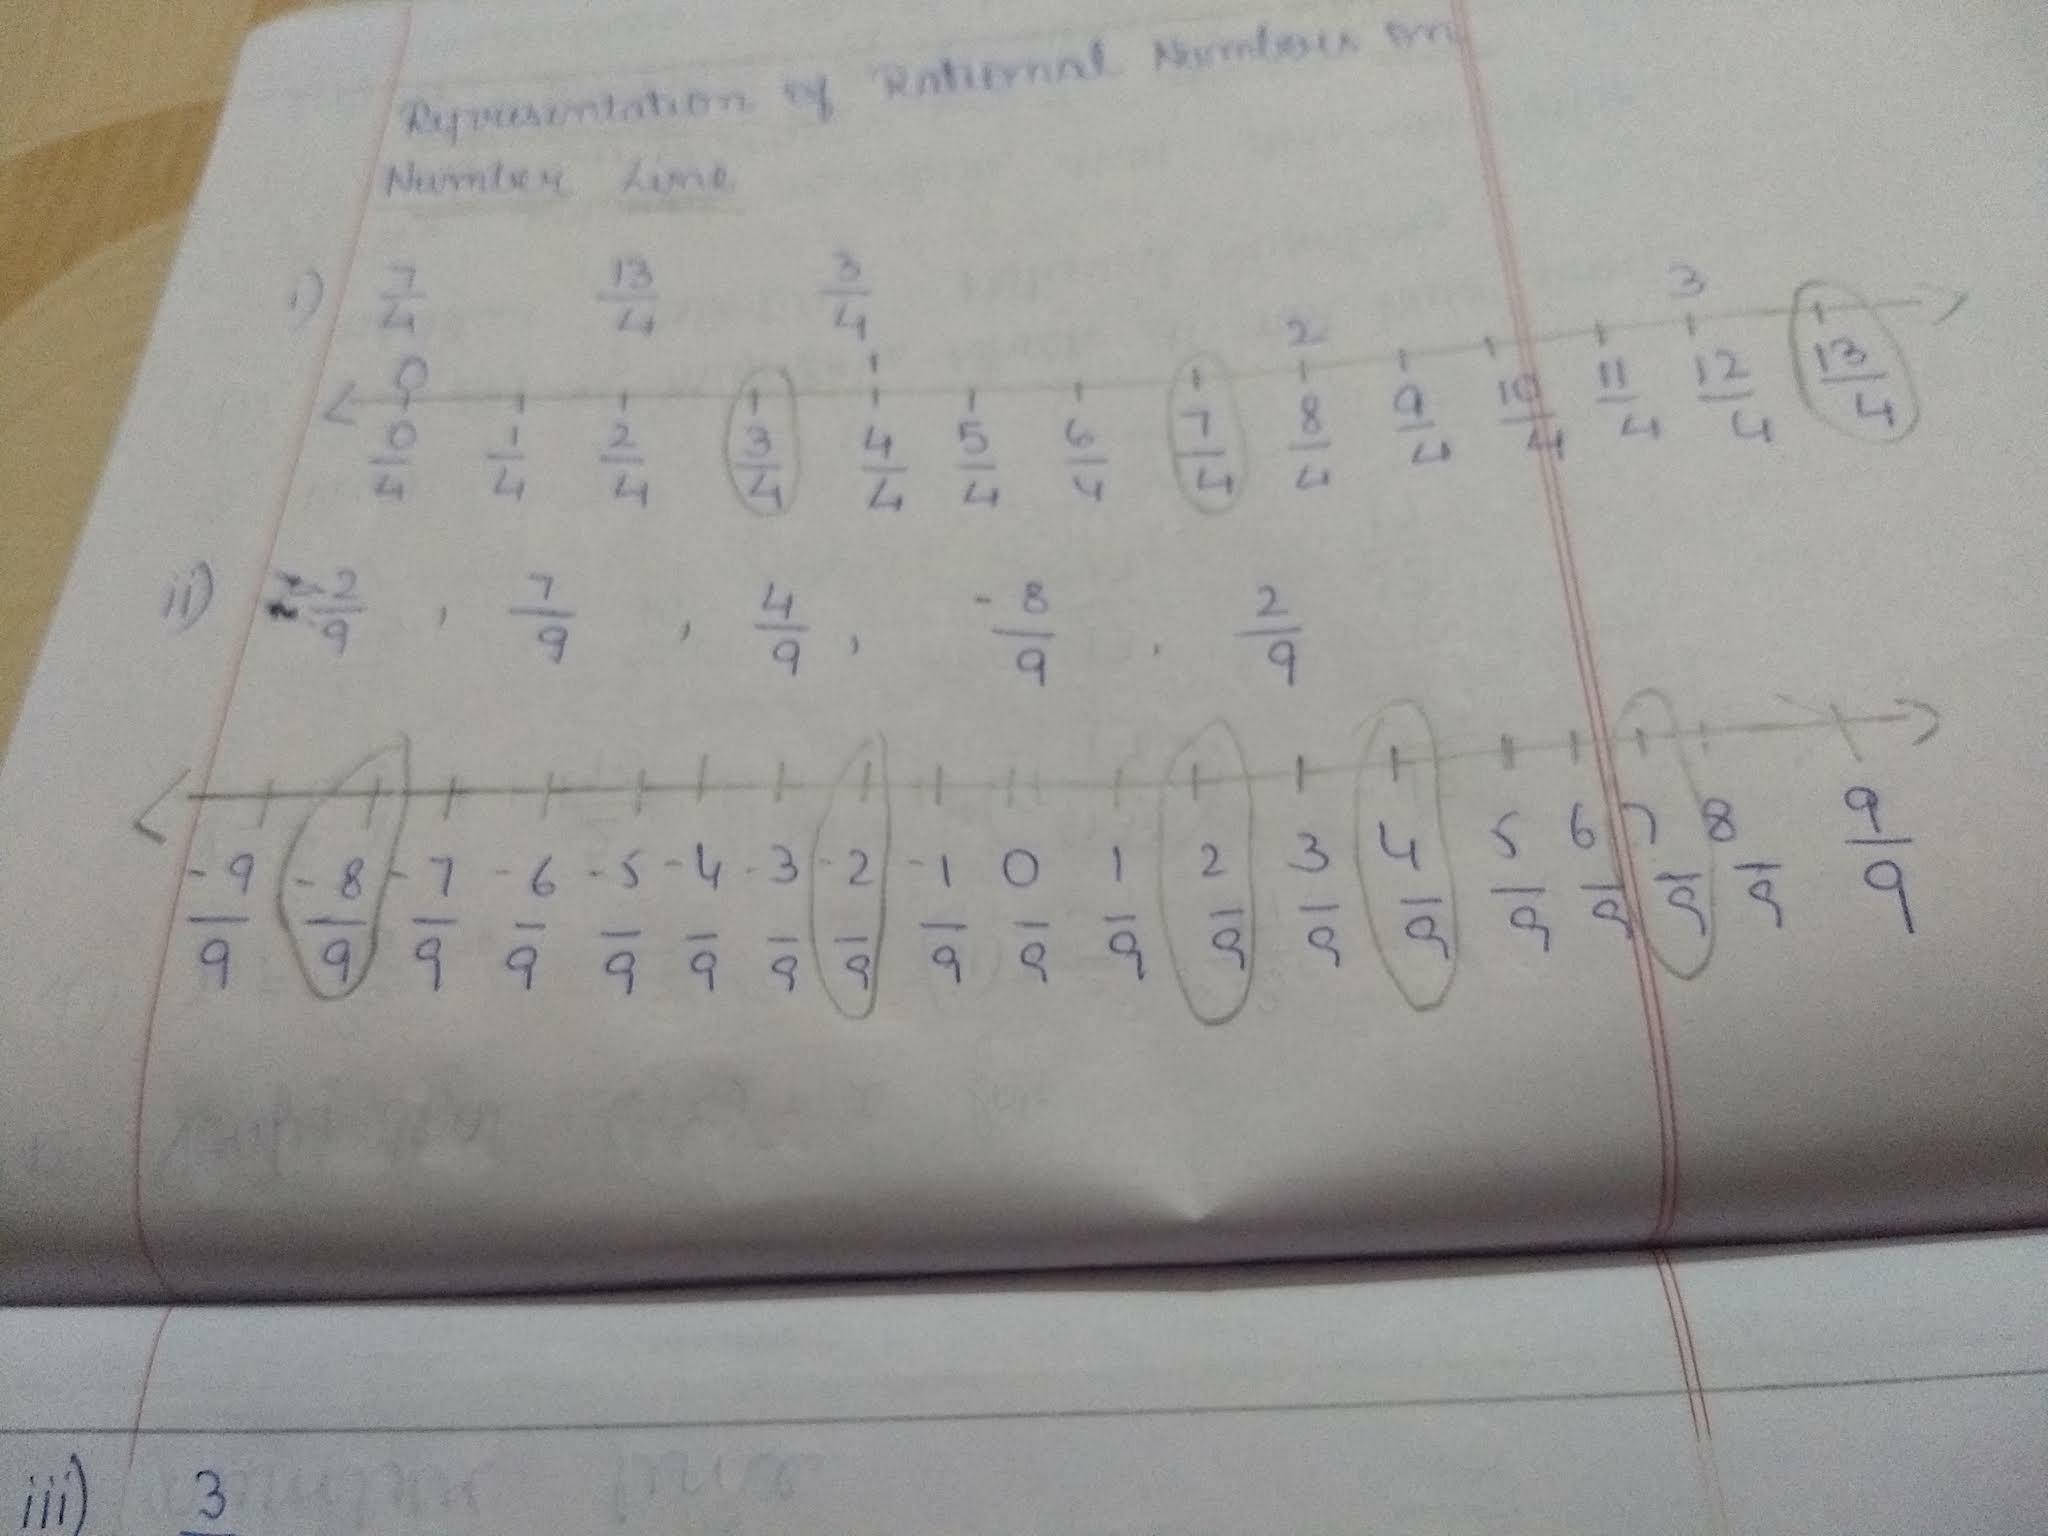 Representation of Rational Numbers on
Number Line
i) 7/4 13/4 3/4
0 1 2 3
0/4 1/4 2/4 3/4 4/4 5/4 6/4 7/4 8/4 9/4 10/4 11/4 12/4 13/4
ii) -2/9 , 7/9 , 4/9 , -8/9 , 2/9
-9/9 -8/9 -7/9 -6/9 -5/9 -4/9 -3/9 -2/9 -1/9 0/9 1/9 2/9 3/9 4/9 5/9 6/9 7/9 8/9 9/9
iii) 3